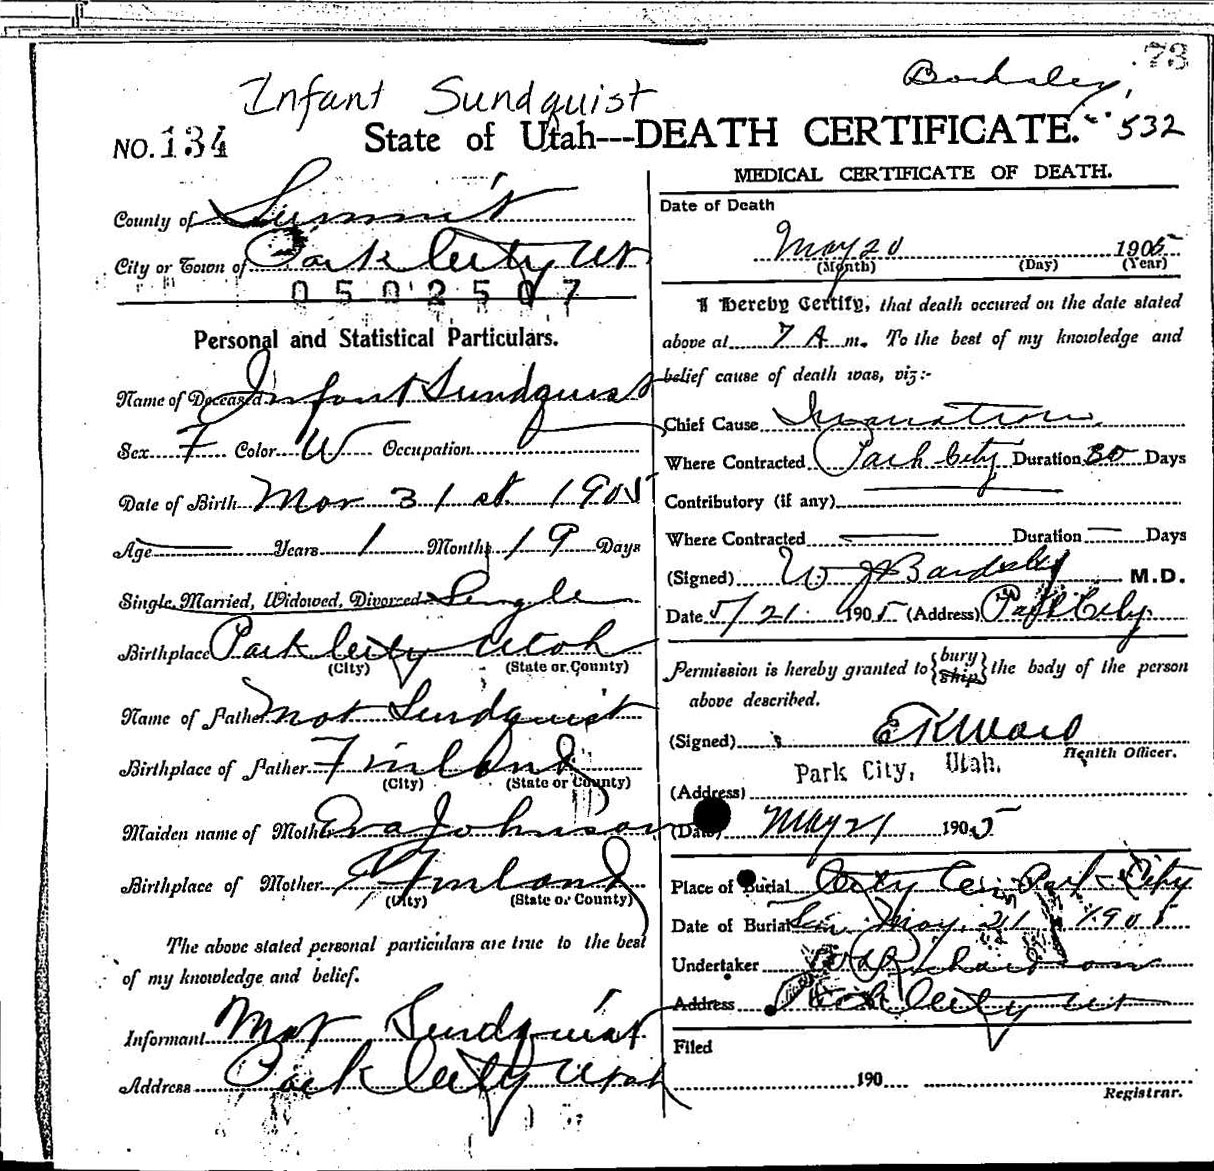 73
Infant Sundquist
Bardsley, 532
NO. 134 State of Utah---DEATH CERTIFICATE.
County of Summit
City or Town of Park City Ut
0502507
Personal and Statistical Particulars.
Name of Deceased Infant Sundquist
Sex F Color W Occupation
Date of Birth Mar 31st 1905
Age — Years 1 Months 19 Days
Single, Married, Widowed, Divorced Single
Birthplace Park City Utah
(City) (State or County)
Name of Father Mat Sundquist
Birthplace of Father Finland
(City) (State or County)
Maiden name of Mother Eva Johnson
Birthplace of Mother Finland
(City) (State or County)
The above stated personal particulars are true to the best
of my knowledge and belief.
Informant Mat Sundquist
Address Park City Utah
MEDICAL CERTIFICATE OF DEATH.
Date of Death
May 20 1905
(Month) (Day) (Year)
I Hereby Certify, that death occured on the date stated
above at 7 A m. To the best of my knowledge and
belief cause of death was, viz:-
Chief Cause Inanition
Where Contracted Park City Duration 30 Days
Contributory (if any) —
Where Contracted — Duration — Days
(Signed) W J Bardsley M.D.
Date 5/21 1905 (Address) Park City
Permission is hereby granted to {bury ship} the body of the person
above described.
(Signed) E K Ward
Health Officer.
Park City, Utah.
(Address)
(Date) May 21 1905
Place of Burial City Cem Park City
Date of Burial Sun May 21 1905
Undertaker Richardson
Address Park City Ut
Filed
190
Registrar.